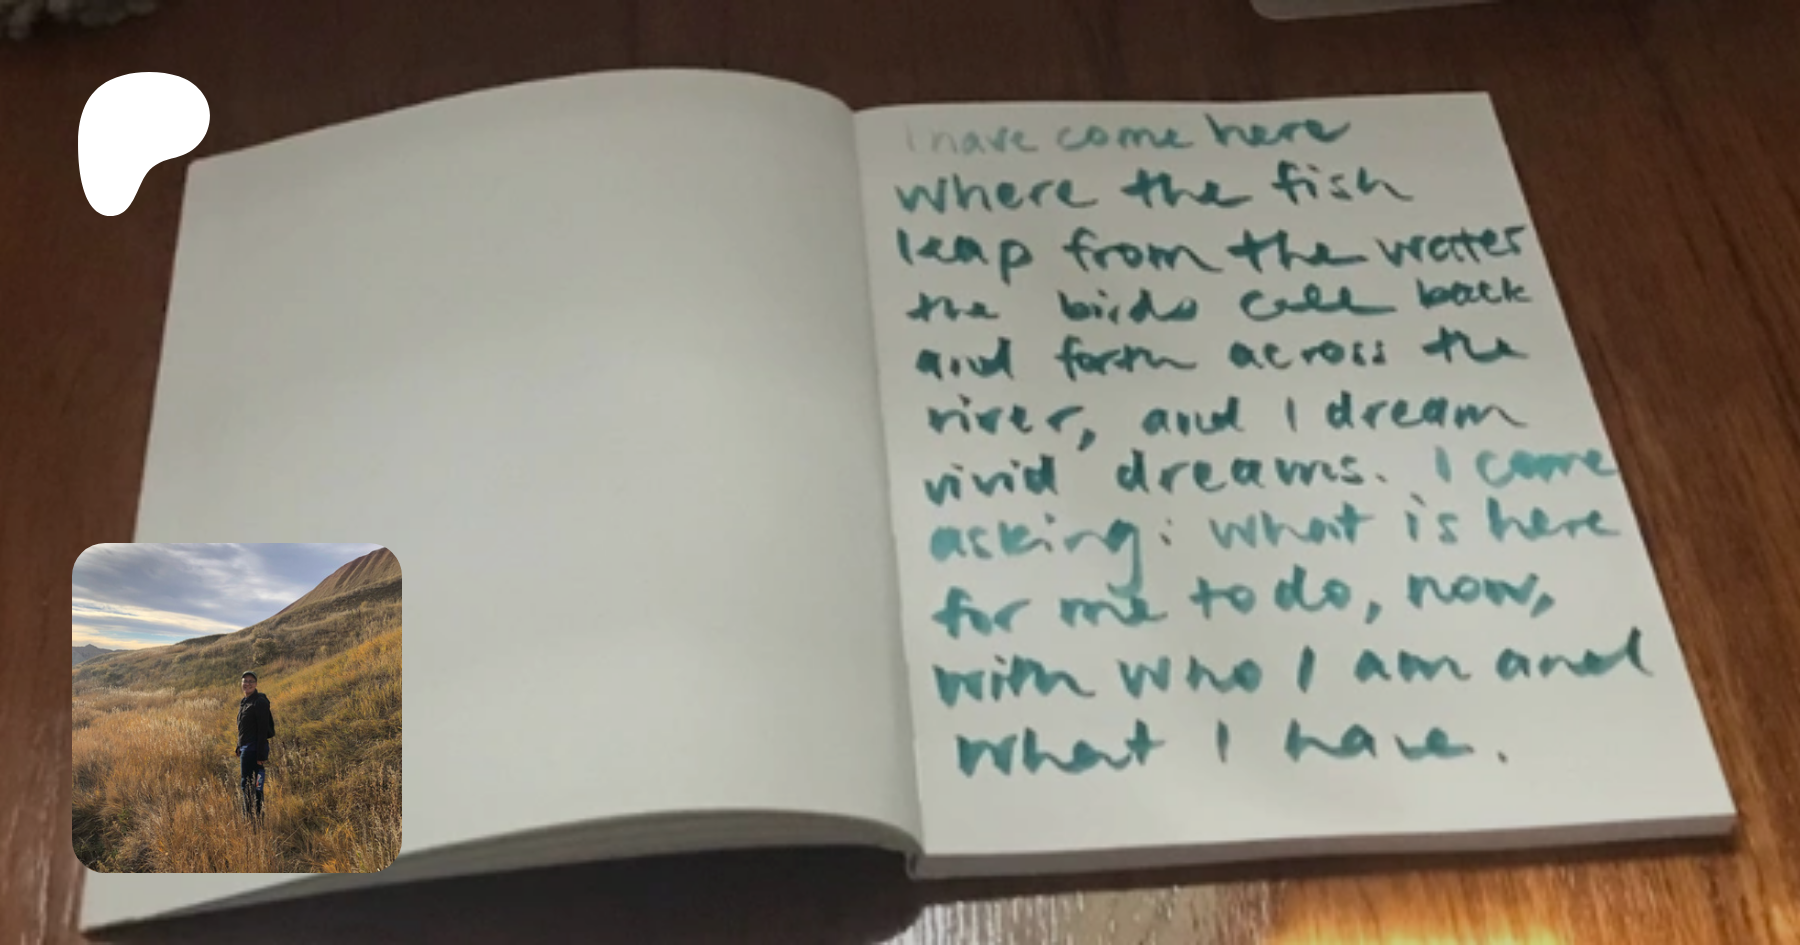 I have come here
where the fish
leap from the water
the birds call back
and forth across the
river, and I dream
vivid dreams. I came
asking: what is here
for me to do, now,
with who I am and
what I have.